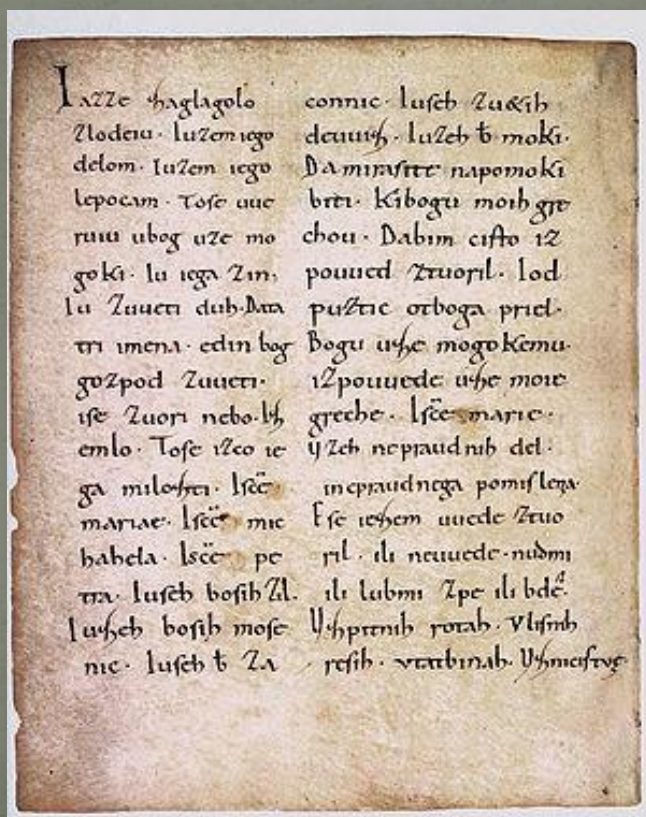 Iazze zaglagolo
zlodeiu. Iuzem iego
delom. Iuzem iego
lepocam. Tose uue
ruiu ubog uze mo
goki. Iu iega zin,
Iu zuueti duh. Data
tri imena. edin bog
gozpod zuueti.
ise zuori nebo. Iz
emlo. Tose izco ie
ga milozti. Iscẽ
mariae. Iscẽ mic
hahela. Iscẽ pe
tra. Iuseh bosih zil.
Iuzeh bosih mose
nic. Iuseh b̄ za
connic. Iuseh zuetih
deuuiz. Iuzeh b̄ moki.
Damirasite napomoki
biti. Kibogu moih gre
chou. Dabim cisto iz
pouued ztuoril. Iod
puztic otboga priel.
Bogu uze mogokemu.
izpouuede uze moie
greche. Iscẽ marie.
Uzeh nepraudnih del.
inepraudnega pomislena.
Ese iezem uuede ztuo
ril. ili neuuede. nudmi
ili lubmi zpe ili bdẽ.
Uzpitnih rotah. Vlisnih
resih. vtatbinah. Uznicistve